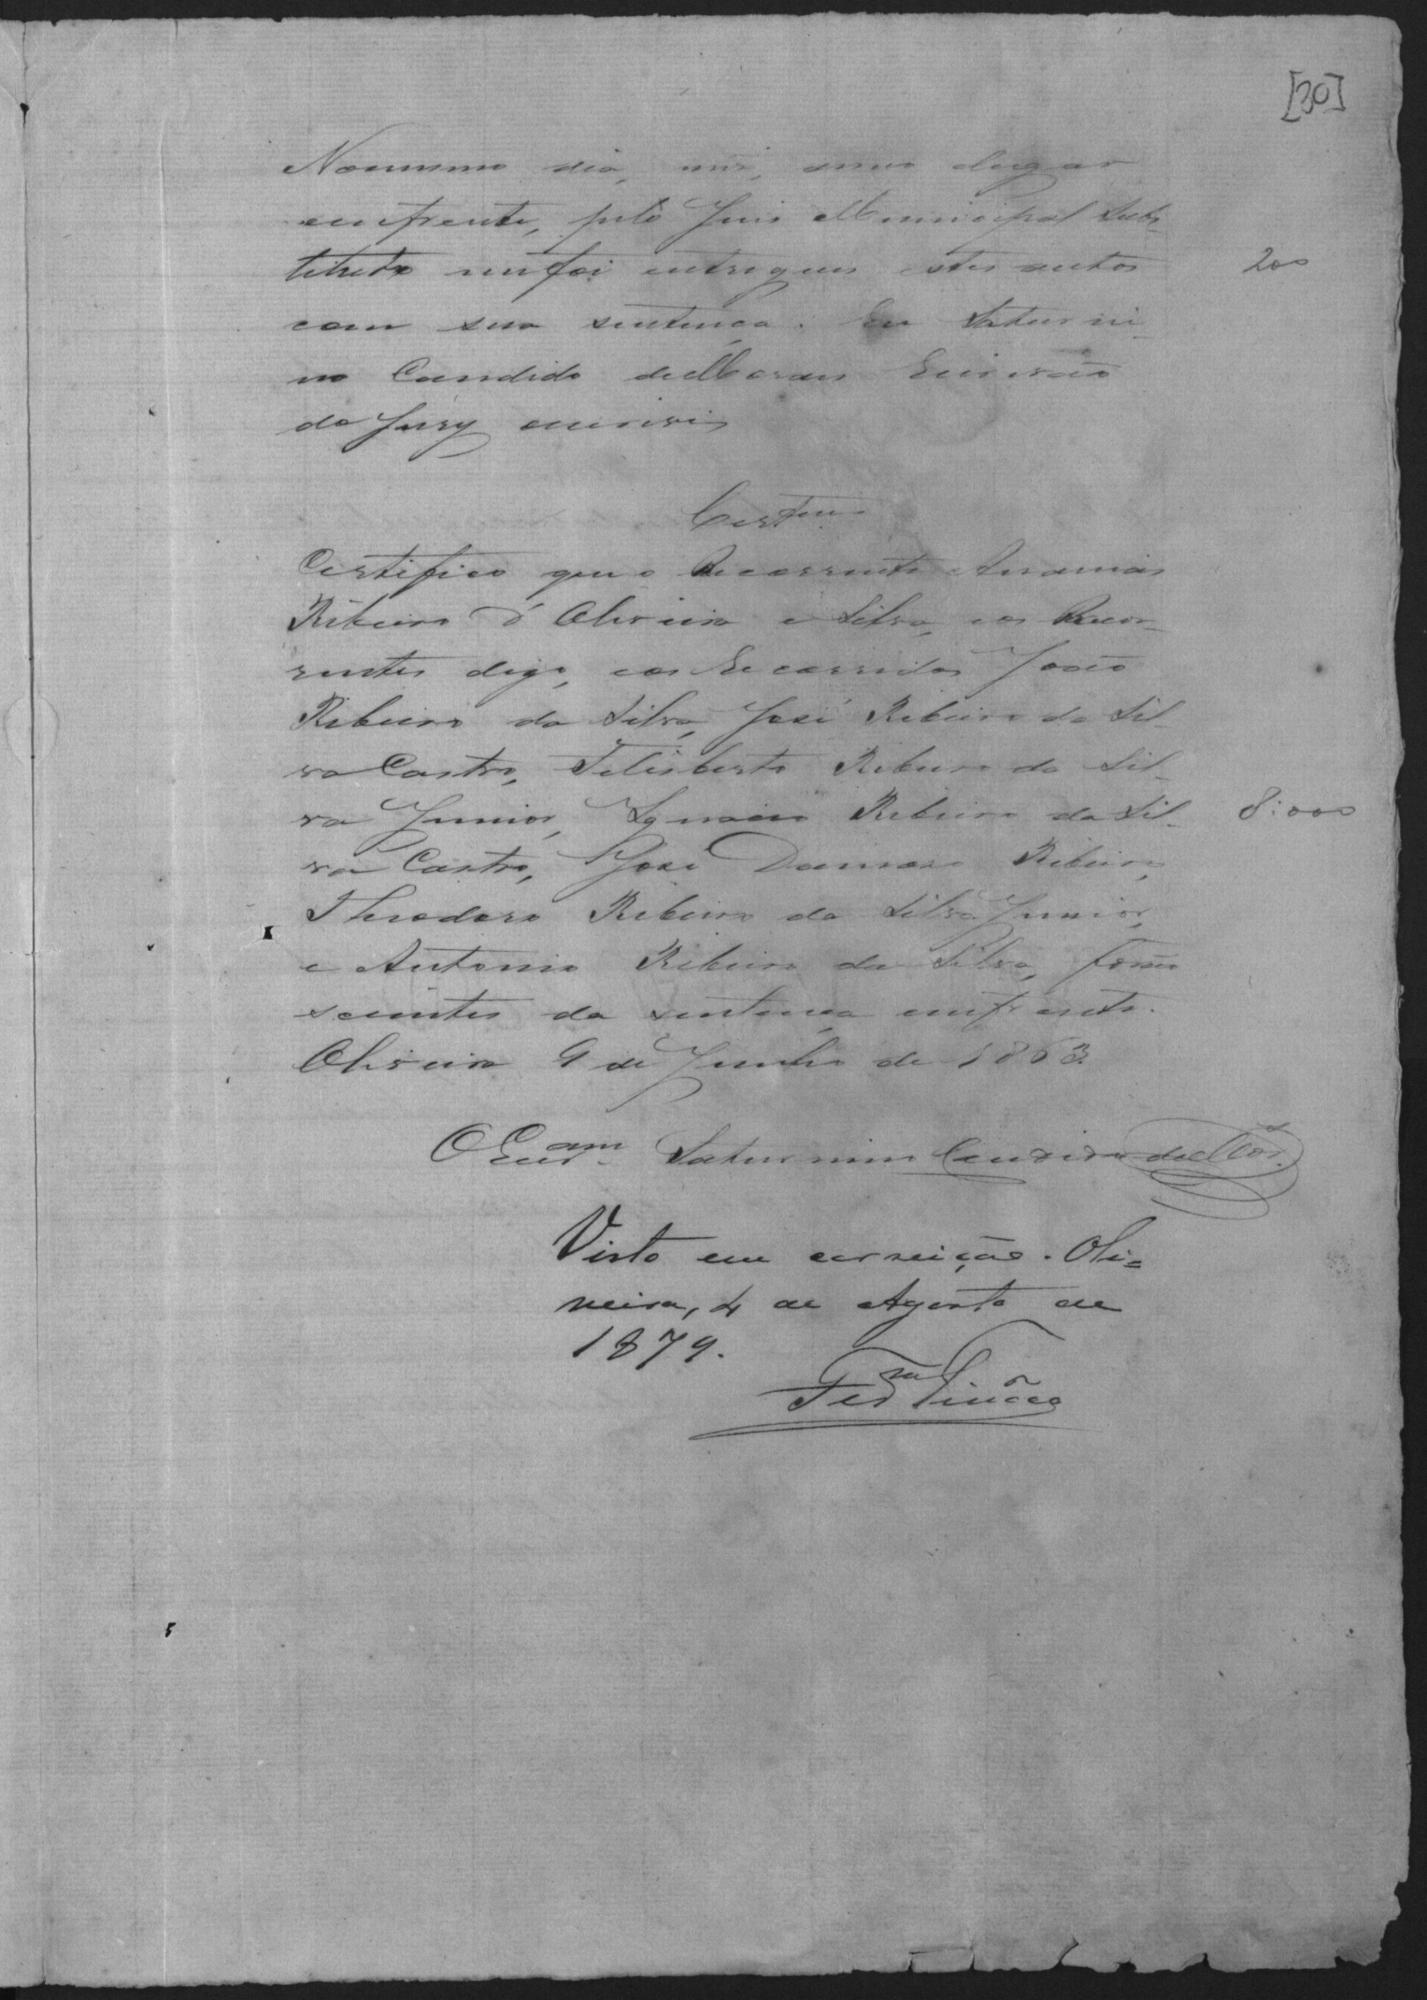 [30]
No mesmo dia, mes, anno e lugar
emfrente, pelo Juis Municipal Subs-
tituto me foi entregues estes autos
200
com sua sentença. Eu Saturni-
no Candido de Moraes Escrivão
do Jury escrivi
Certam
Certifico que o Recorrente Ananias
Ribeiro d'Oliveira e Silva, e os Recor-
rentes digo, e os Recorridos João
Ribeiro da Silva, José Ribeiro da Sil-
va Castro, Felisberto Ribeiro da Sil-
va Junior, Ignacio Ribeiro da Sil-
8:000
va Castro, José Damaso Ribeiro,
Theodoro Ribeiro da Silva Junior,
e Antonio Ribeiro da Silva, forão
scientes da sentença emfrente.
Oliveira 9 de Junho de 1863
O Escram Saturnino Candido de Mos.
Visto em correição. Oli=
veira, 4 de Agosto de
1879.